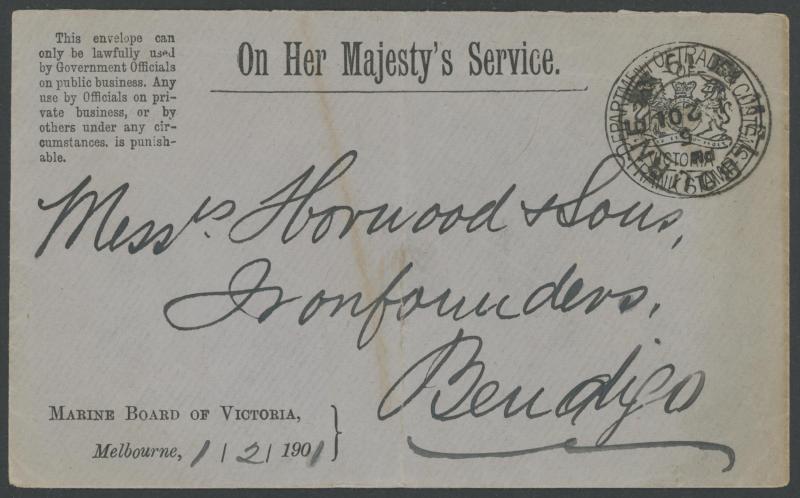 This envelope can
only be lawfully used
by Government Officials
on public business. Any
use by Officials on pri-
vate business, or by
others under any cir-
cumstances, is punish-
able.
On Her Majesty's Service.
DEPARTMENT OF TRADE & CUSTOMS
VICTORIA
FRANK STAMP
Mess.rs Horwood & Sons,
Ironfounders,
Bendigo
MARINE BOARD OF VICTORIA,
Melbourne, 1 / 2 / 1901